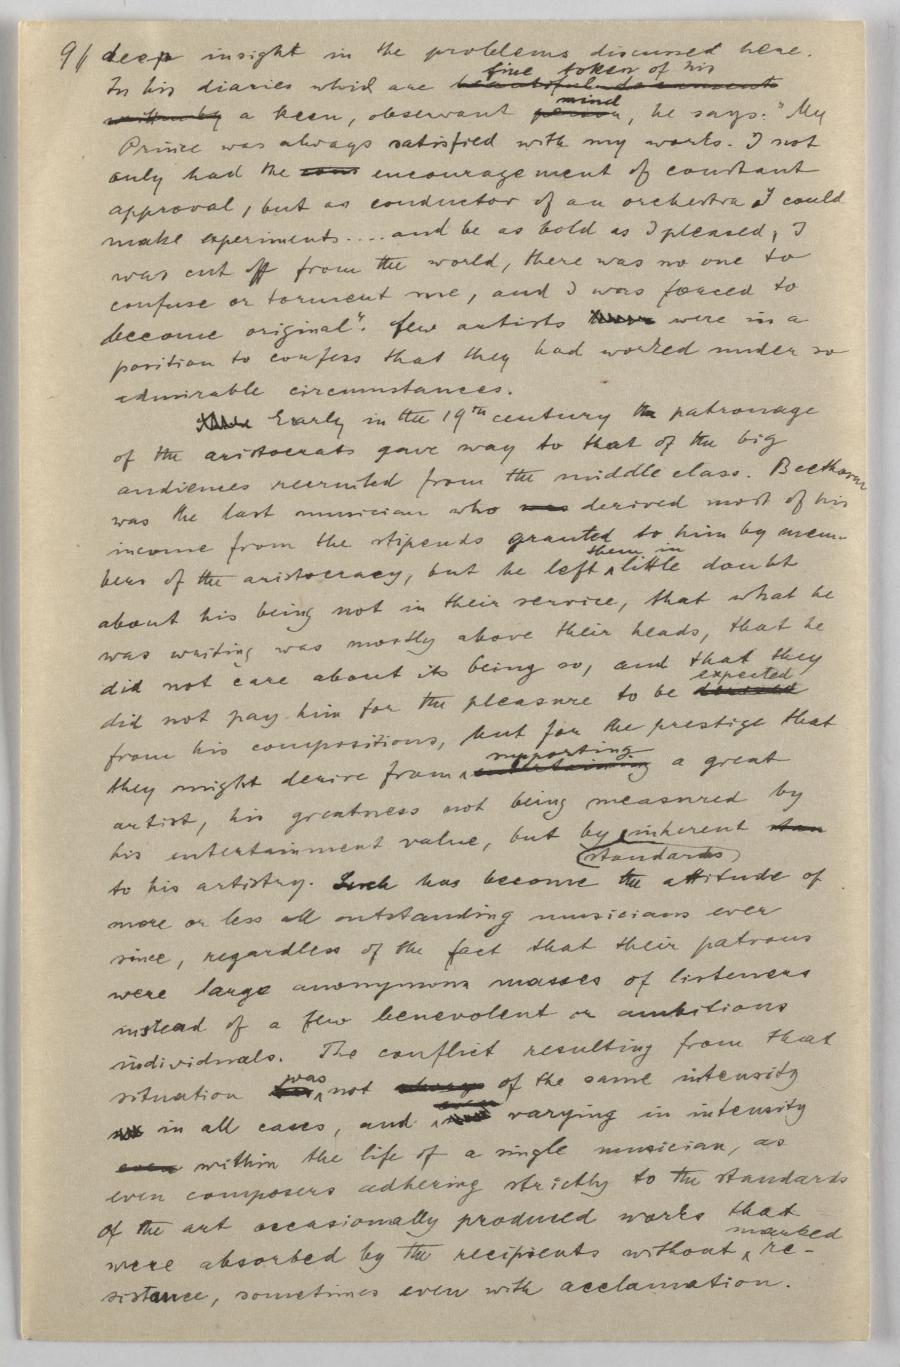 9/ deep insight in the problems discussed here.
fine token of his
In his diaries which are beautiful documents
mind
written by a keen, observant person, he says: "My
Prince was always satisfied with my works. I not
only had the cons encouragement of constant
approval, but as conductor of an orchestra I could
make experiments .... and be as bold as I pleased, I
was cut off from the world, there was no one to
confuse or torment me, and I was forced to
become original". Few artists were in a
position to confess that they had worked under so
admirable circumstances.
Early in the 19th century the patronage
of the aristocrats gave way to that of the big
audiences recruited from the middle class. Beethoven
was the last musician who was derived most of his
income from the stipends granted to him by mem-
them in
bers of the aristocracy, but he left little doubt
about his being not in their service, that what he
was writing was mostly above their heads, that he
did not care about its being so, and that they
expected
did not pay him for the pleasure to be derived
from his compositions, but for the prestige that
supporting
they might derive from entertaining a great
artist, his greatness not being measured by
his entertainment value, but by inherent stan
standards
to his artistry. Such has become the attitude of
more or less all outstanding musicians ever
since, regardless of the fact that their patrons
were large anonymous masses of listeners
instead of a few benevolent or ambitious
individuals. The conflict resulting from that
was
situation not always of the same intensity
even
in all cases, and varying in intensity
even within the life of a single musician, as
even composers adhering strictly to the standards
of the art occasionally produced works that
marked
were absorbed by the recipients without re-
sistance, sometimes even with acclamation.